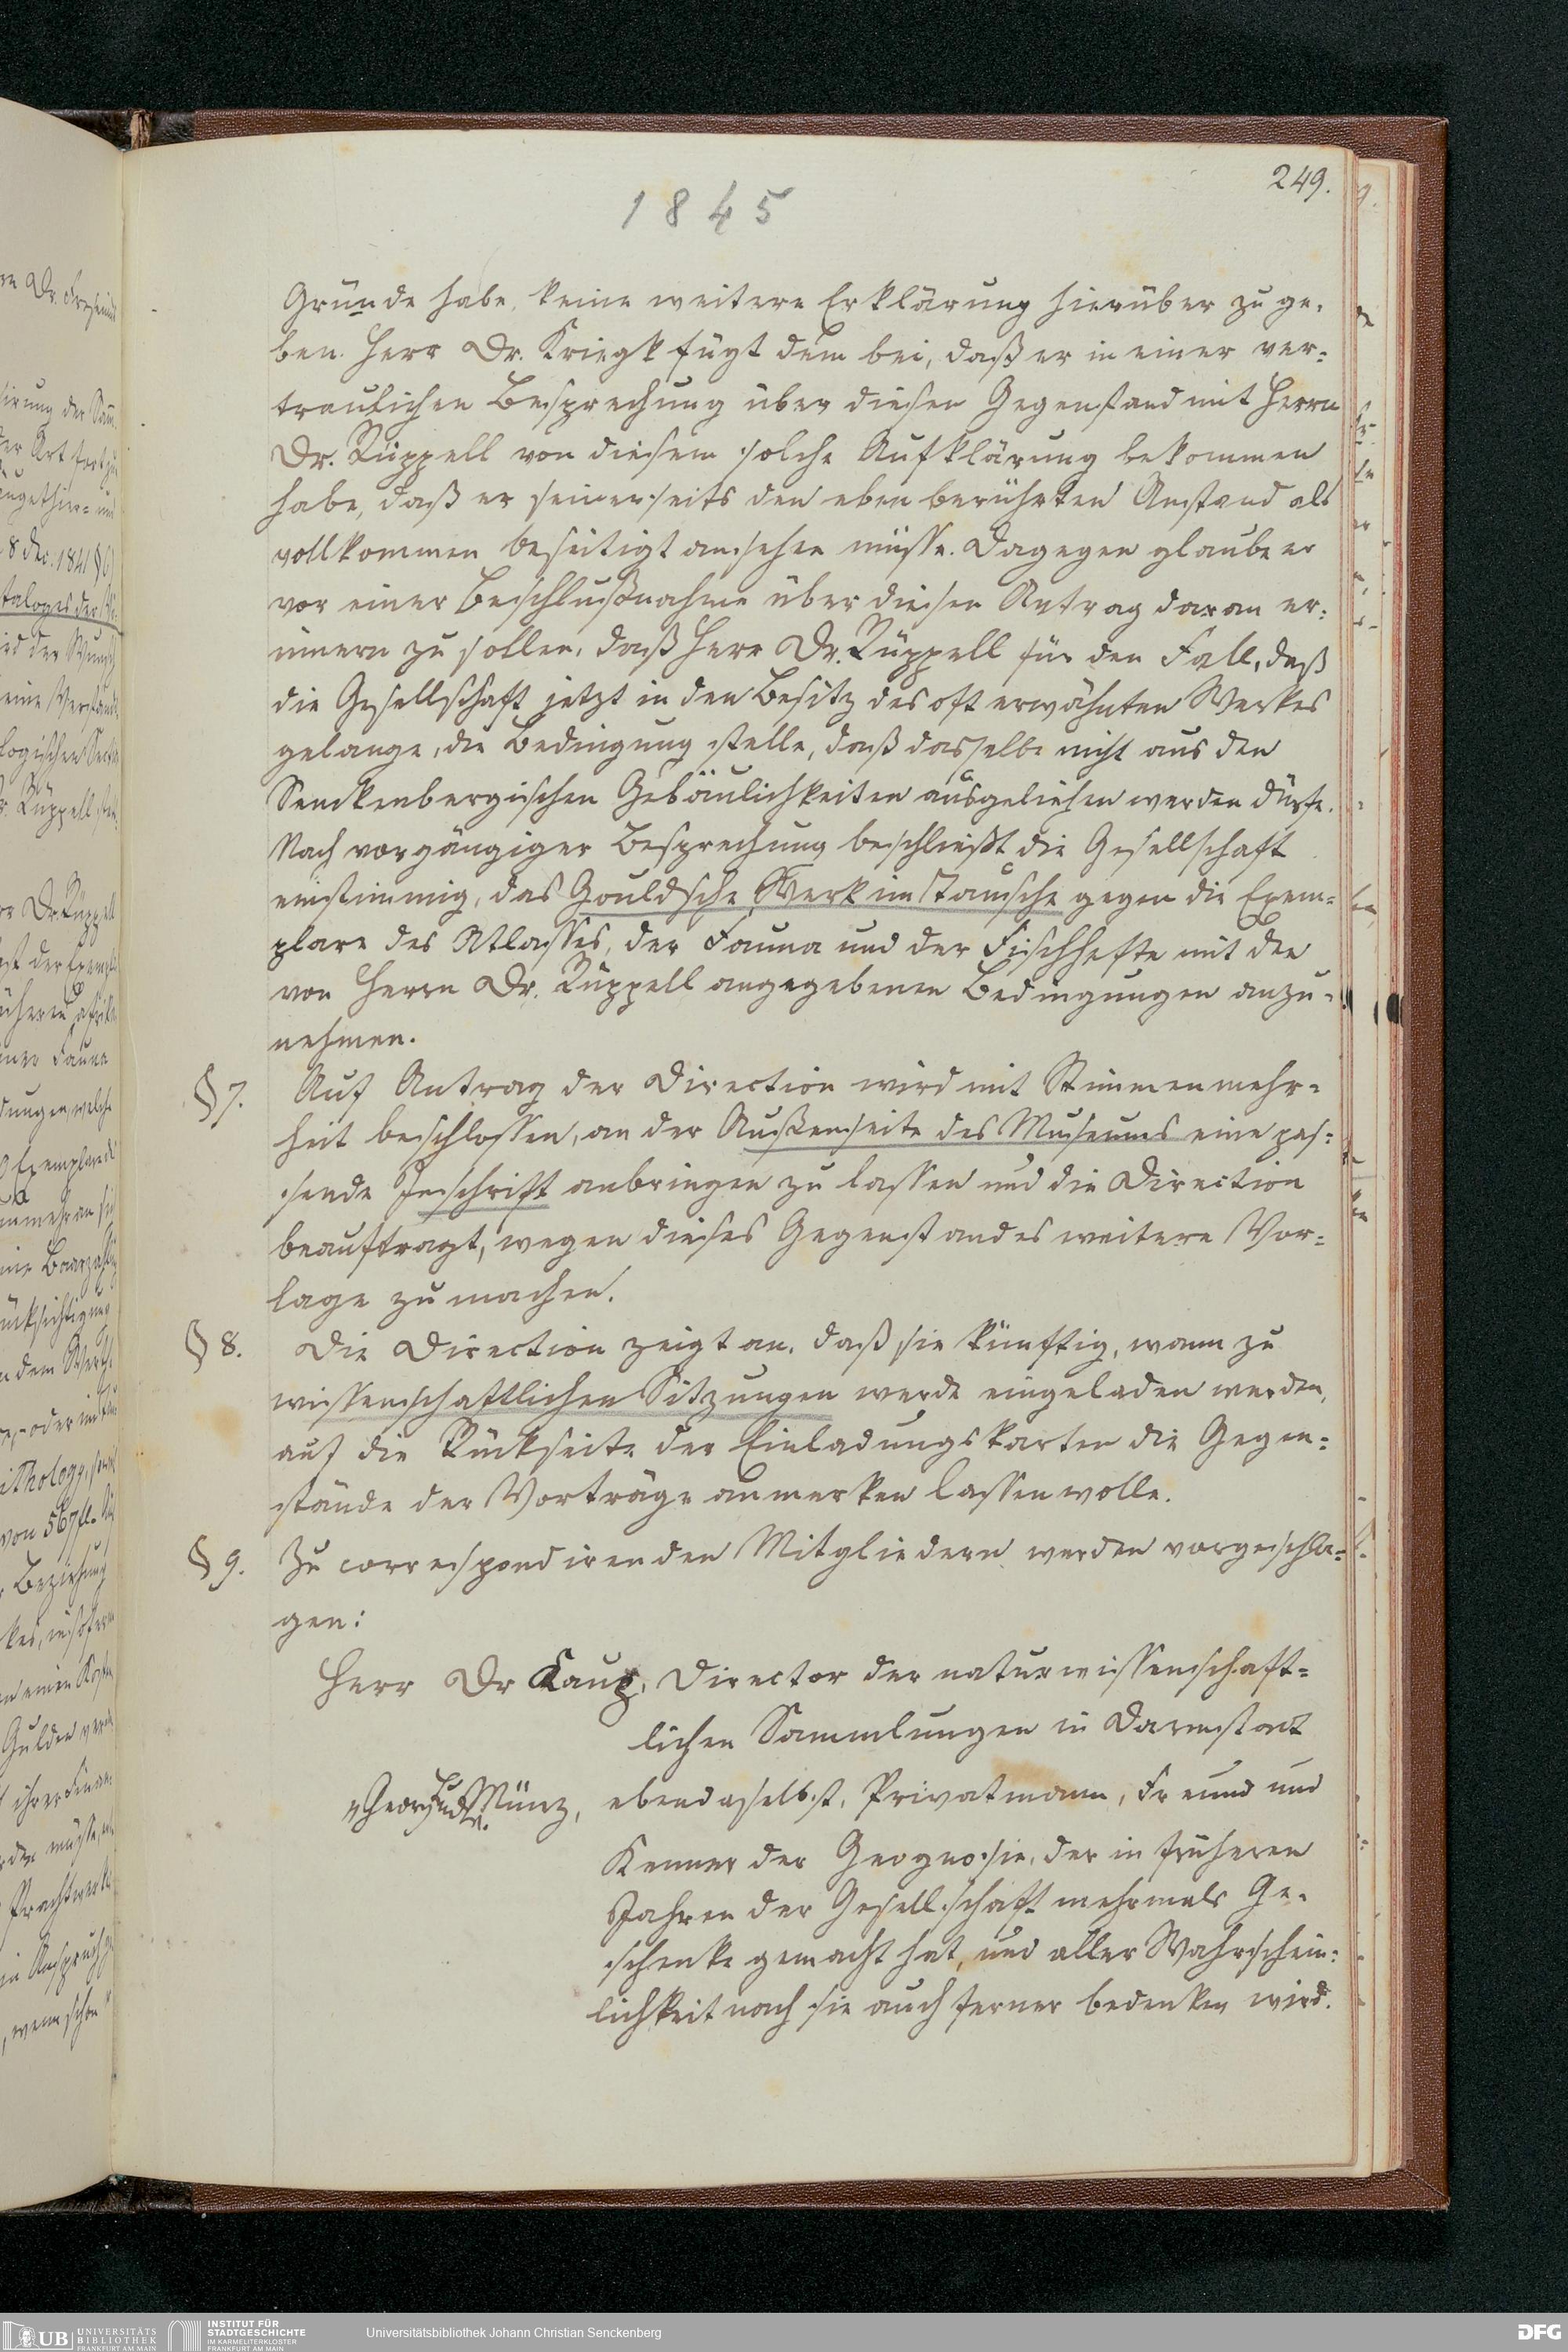 249.
1845
Gründe habe, keine weitere Erklärung hierüber zu ge-
ben. Herr Dr. Kriegk fügt dem bei, daß er in einer ver-
traulichen Besprechung über diesen Gegenstand mit Herrn
Dr. Rüppell von diesem solche Aufklärung bekommen
habe, daß er seinerseits den eben berührten Anstand als
vollkommen beseitigt ansehen müsse. Dagegen glaube er
vor einer Beschlußnahme über diesen Antrag daran er-
innern zu sollen, daß Herr Dr. Rüppell für den Fall, daß
die Gesellschaft jetzt in den Besitz des oft erwähnten Werkes
gelange, die Bedingung stelle, daß dasselbe nicht aus den
Senckenbergischen Gebäulichkeiten ausgeliehen werden dürfe.
Nach vorgängiger Besprechung beschließt die Gesellschaft
einstimmig, das Gouldsche Werk im Tausche gegen die Exem-
plare des Atlasses, der Fauna und der Fischhefte mit den
von Herrn Dr. Rüppell angegebenen Bedingungen anzu-
nehmen.
§ 7. Auf Antrag der Direction wird mit Stimmenmehr-
heit beschlossen, an der Außenseite des Museums eine pas-
sende Inschrift anbringen zu lassen und die Direction
beauftragt, wegen dieses Gegenstandes weitere Vor-
lage zu machen.
§ 8. Die Direction zeigt an, daß sie künftig, wann zu
wissenschaftlichen Sitzungen werde eingeladen werden,
auf die Rückseite der Einladungskarten die Gegen-
stände der Vorträge anmerken lassen wolle.
§ 9. Zu correspondirenden Mitgliedern werden vorgeschla-
gen:
Herr Dr Kaup, Director der naturwissenschaft-
lichen Sammlungen in Darmstadt
" Georg Ludw. Münz, ebendaselbst, Privatmann, Freund und
Kenner der Geognosie, der in früheren
Jahren der Gesellschaft mehrmals Ge-
schenke gemacht hat, und aller Wahrschein-
lichkeit nach sie auch ferner bedenken wird.
UB UNIVERSITÄTS
BIBLIOTHEK
FRANKFURT AM MAIN
INSTITUT FÜR
STADTGESCHICHTE
IM KARMELITERKLOSTER
FRANKFURT AM MAIN
Universitätsbibliothek Johann Christian Senckenberg
DFG